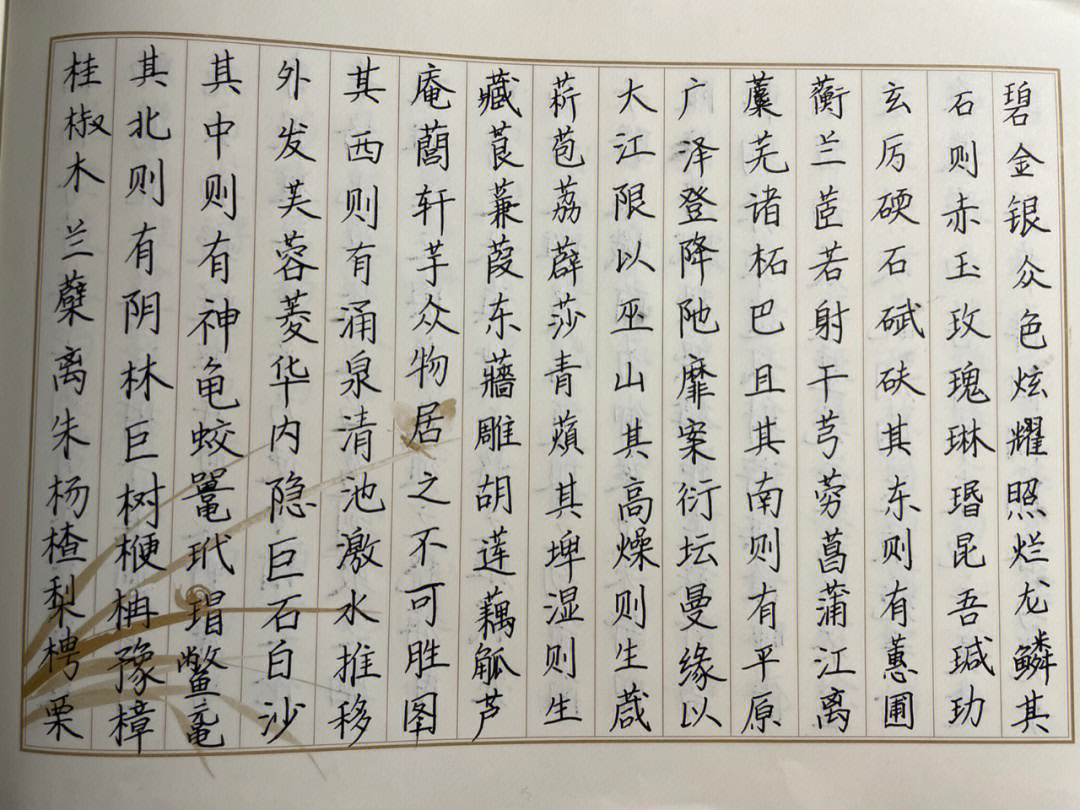 碧金银众色炫耀照烂龙鳞其
石则赤玉玫瑰琳瑉昆吾瑊玏
玄厉硬石碔砆其东则有蕙圃
蘅兰茝若射干芎䓖菖蒲江离
蘪芜诸柘巴且其南则有平原
广泽登降陁靡案衍坛曼缘以
大江限以巫山其高燥则生葴
菥苞荔薜莎青薠其埤湿则生
藏莨蒹葭东蘠雕胡莲藕觚芦
庵䕡轩芋众物居之不可胜图
其西则有涌泉清池激水推移
外发芙蓉菱华内隐巨石白沙
其中则有神龟蛟鼍玳瑁鳖鼋
其北则有阴林巨树楩柟豫樟
桂椒木兰蘖离朱杨楂梨梬栗